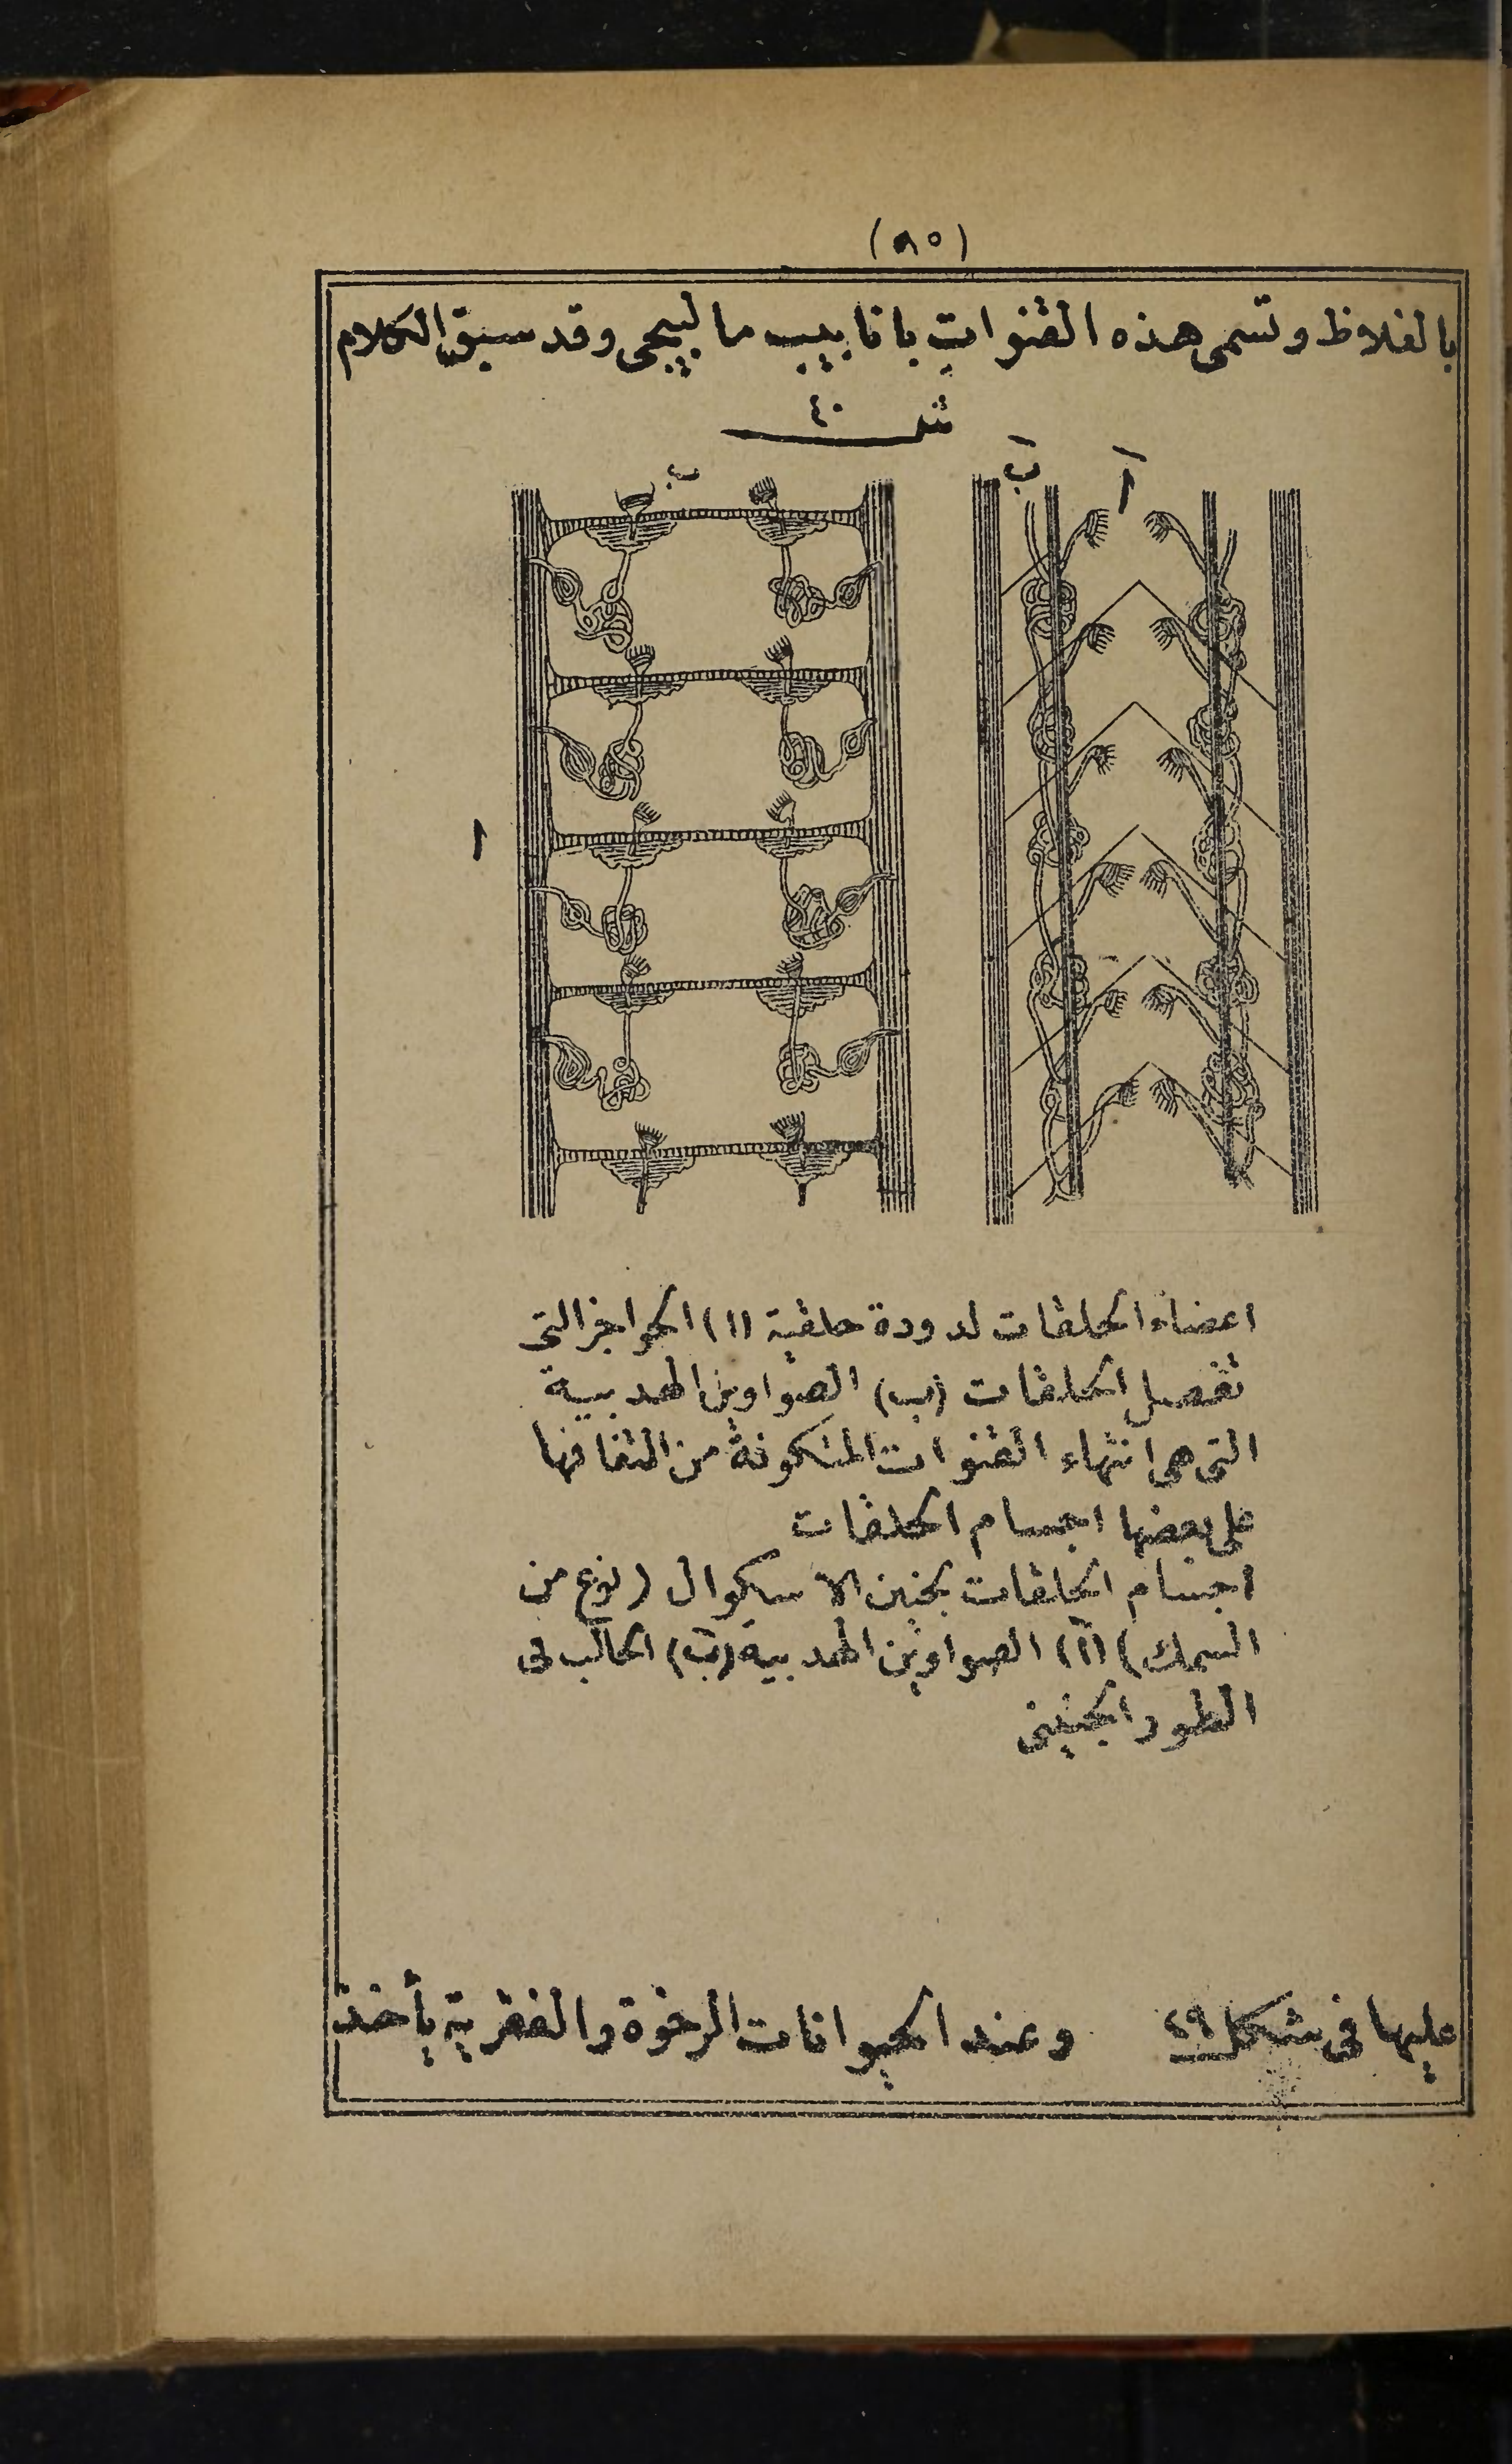 (٨٥)
بالغلاظ وتسمى هذه القنوات بانابيب مالپيجى وقد سبق الكلام
شكـ ٤٠
اَ بَ ب
ا
اعضاء الحلقات لدودة حلقية (ا) الحواجز التى
تفصل الحلقات (ب) الصواوين الهدبية
التى هى انتهاء القنوات المتكونة من التفافها
على بعضها اجسام الحلقات
اجسام الحلقات بجنين الاسكوال (نوع من
السمك) (اَ) الصواوين الهدبية (بَ) الحالب فى
الطور الجنينى
عليها فى شكل ٢٩ وعند الحيوانات الرخوة والفقرية يأخذ